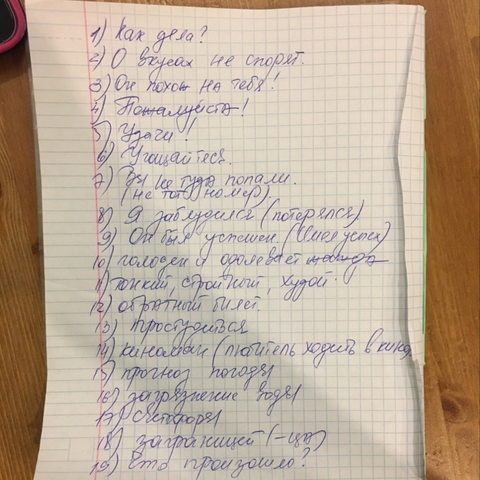 1) Как дела?
2) О вкусах не спорят.
3) Он похож на тебя!
4) Пожалуйста!
5) Удачи!
6) Угощайтесь.
7) Вы не туда попали.
(не тот номер)
8) Я заблудился (потерялся)
9) Он был успешен. (имел успех)
10) голоден и одолевает жажда
11) тонкий, стройный, худой.
12) обратный билет.
13) простудиться
14) киноман (любитель ходить в кино)
15) прогноз погоды
16) загрязнение воды
17) светофоры
18) заграницей (-цу)
19) Что произошло?